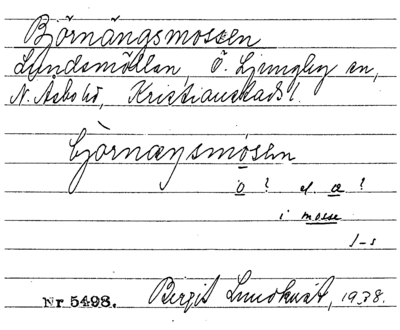 Björnängsmossen
Lundsmöllan, Ö. Ljungby sn,
N. Åsbo hd, Kristianstads l.
bjornæŋsmosen
o ? el. æ ?
i mosse
s-s
Nr 5498. Birgit Lundkvist, 1938.